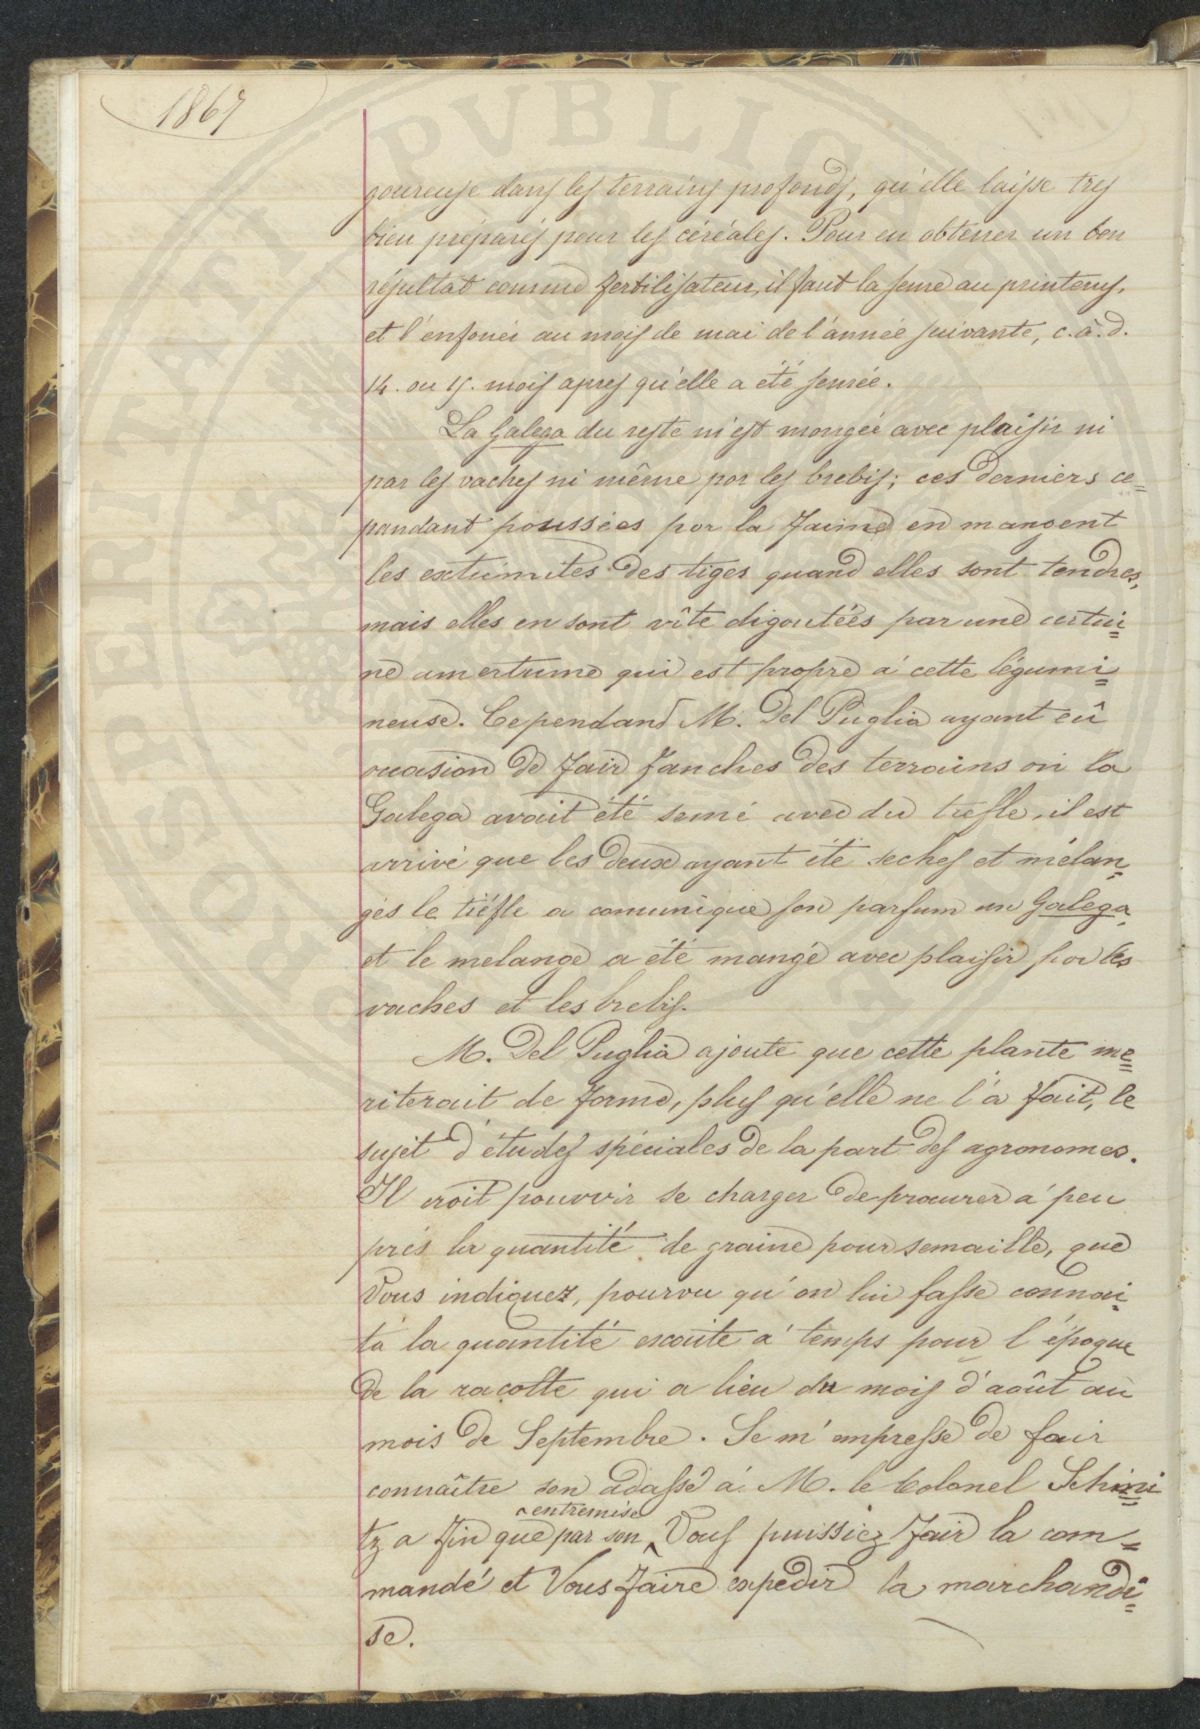 1867
goureuse dans les terrains profonds, qu'elle laisse tres
bien préparés pour les céréales. Pour en obtenir un bon
résultat comme fertilisateur, il faut la seme au printems,
et l'enfouir au mois de mai de l'année suivante, c.à.d.
14. ou 15. mois apres qu'elle a été semée.
La Galega du reste n'est mangée avec plaisir ni
par les vaches ni même por les brebis; ces derniers ce=
pandant poussées por la faime en mangent
les extrimites des tiges quand elles sont tendres,
mais elles en sont vîte digoutées par une certai=
ne amertume qui est propre á cette légumi=
neuse. Cependand M. Del Puglia ayant eû
occasion de fair fanches des terrains on la
Galega avait été semé avec du trefle, il est
arrivé que les deux ayant été seches et mélan=
gés le tréfle a comunique son parfum un Galega,
et le melange a été mangé avec plaisir por les
vaches et les brebis.
M. Del Puglia ajoute que cette plante me=
riterait de forme, plus qu'elle ne l'a fait, le
sujet d'études spéciales de la part des agronomes.
Il croit pouvoir se charger de procurer á peu
prés la quantité de graine pour semaille, que
Vous indiquez, pourvu qu'on lui fasse connai=
ta la quantité excoite á temps pour l'époque
de la racolte qui a lieu du mois d'août au
mois de Septembre. Je m'empresse de fair
connaître son adasse á M. le Colonel Schmi=
entremise
tz a fin que par son Vous puissiez fair la com=
mandé et Vous faire expedir la marchandi=
se.